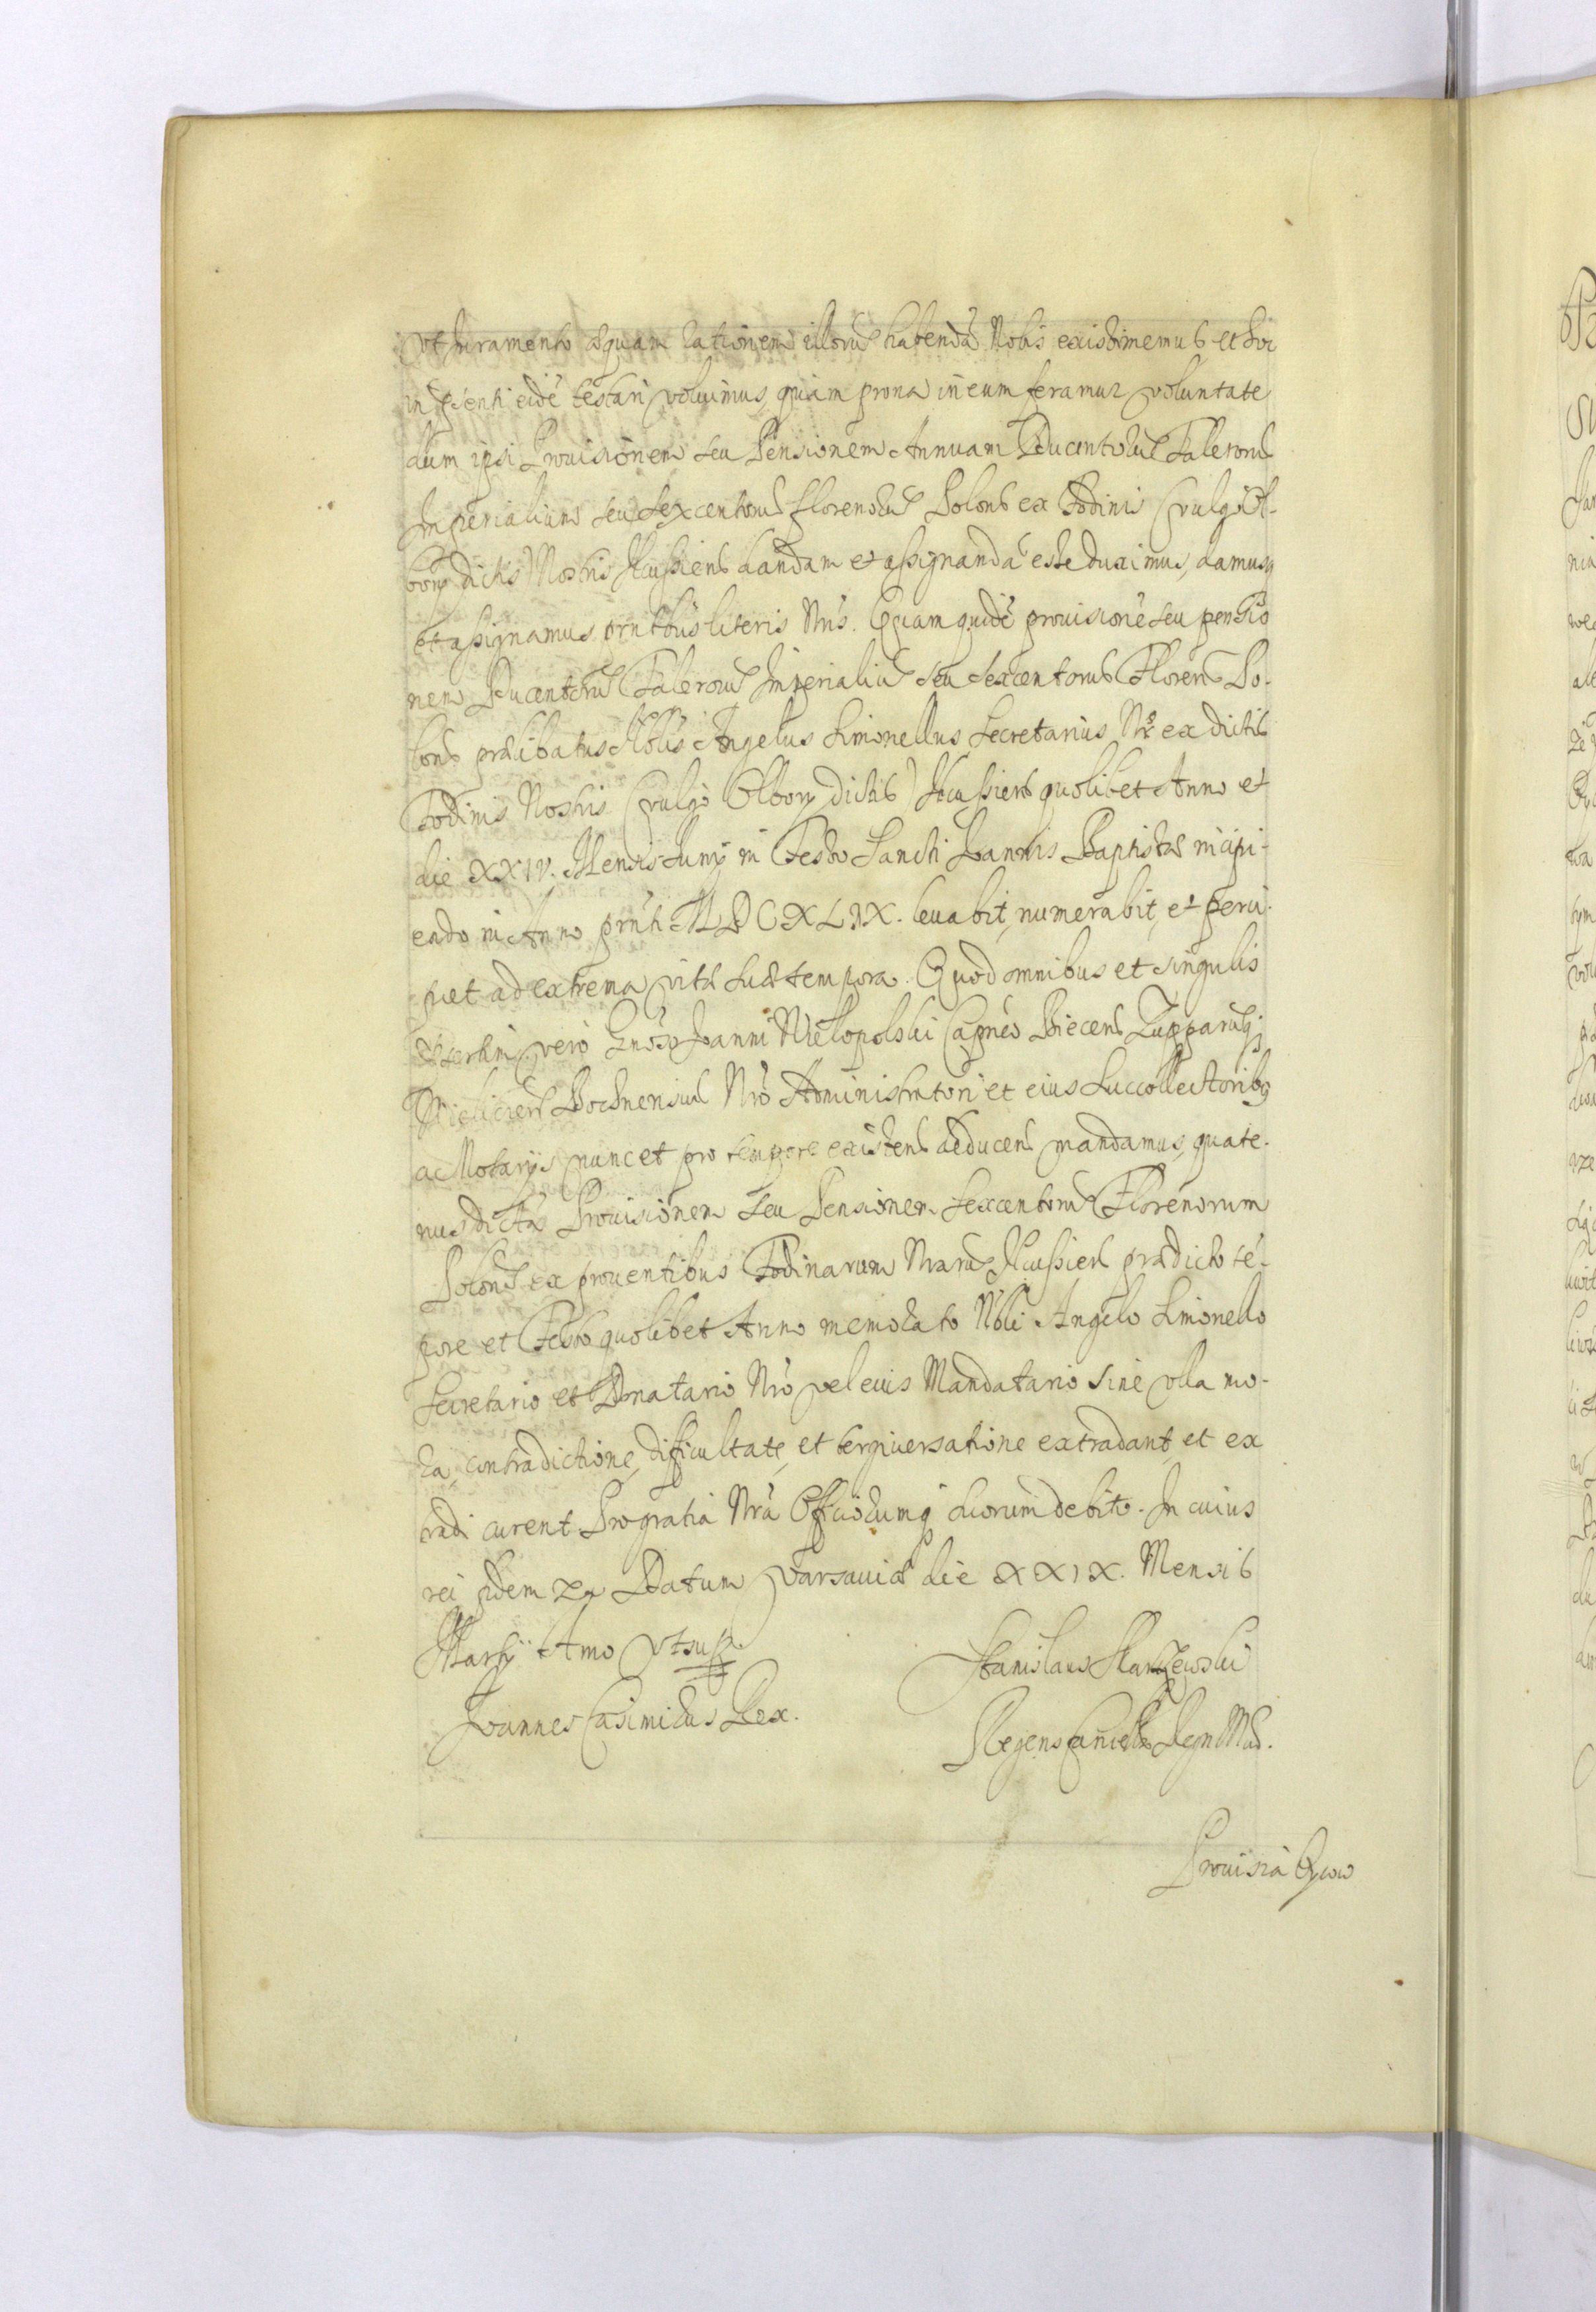 vt iuramento æquam rationem illoru habendā Nobis existimemus et hic
in psenti eidē testari voluimus, quàm prona in eum feramur voluntate
dum ipsi Prouisionem seu Pensionem Annuam Ducentoru Taleroru
Imperialium seu sexcentoru florenoru Polon ex Fodinis (vulgò Ol-
bory dictis) Nostris Ilcussien dandam et assignandā esse duximus, damusq
et assignamus prntbus literis Nris. Quam quidē prouisionē seu pensio
nem Ducentoru Taleroru Imperialiu seu sexcentoru Floren Po-
lon prælibatus Nblis Angelus Simonellus Secretarius Nr ex dictis
Fodinis Nostris (vulgò Olbory dictis) Ilcussien quolibet Anno et
die XXIV. Mensis Junÿ in Festo Sancti Joannis Baptistæ incipi-
endo in Anno prnti MDCXLIX. leuabit, numerabit, et perci-
piet ad extrema vitæ suæ tempora. Quod omnibus et singulis
vero Gnoso Joanni Wielopolski Capneo Biecen Zupparuq
Wielicien Bochnensiu Nro Administratori et eius Succollectoribq
ac Notarÿs nunc et pro tempore existen deducen mandamus, quate-
nus dictā Prouisionem seu Pensionem sexcentoru Florenorum
Polon ex prouentibus Fodinarum Nraru Ilcussien prædicto tē-
pore et Festo quolibet Anno memorato Nbli Angelo Simonello
Secretario et Donatario Nro vel eius Mandatario sine vlla mo-
ra, contradictione, difficultate, et tergiuersatione extradant, et ex
tradi curent Pro gratia Nra Officiorumq suorum debito. In cuius
rei fidem Datum Varsauiæ die XXIX. Mensis
Martÿ Anno vt sup.
Stanislaus Skarszewski
Joannes Casimirus Rex.
Regens Cancell Regni Mp.
Prouisia